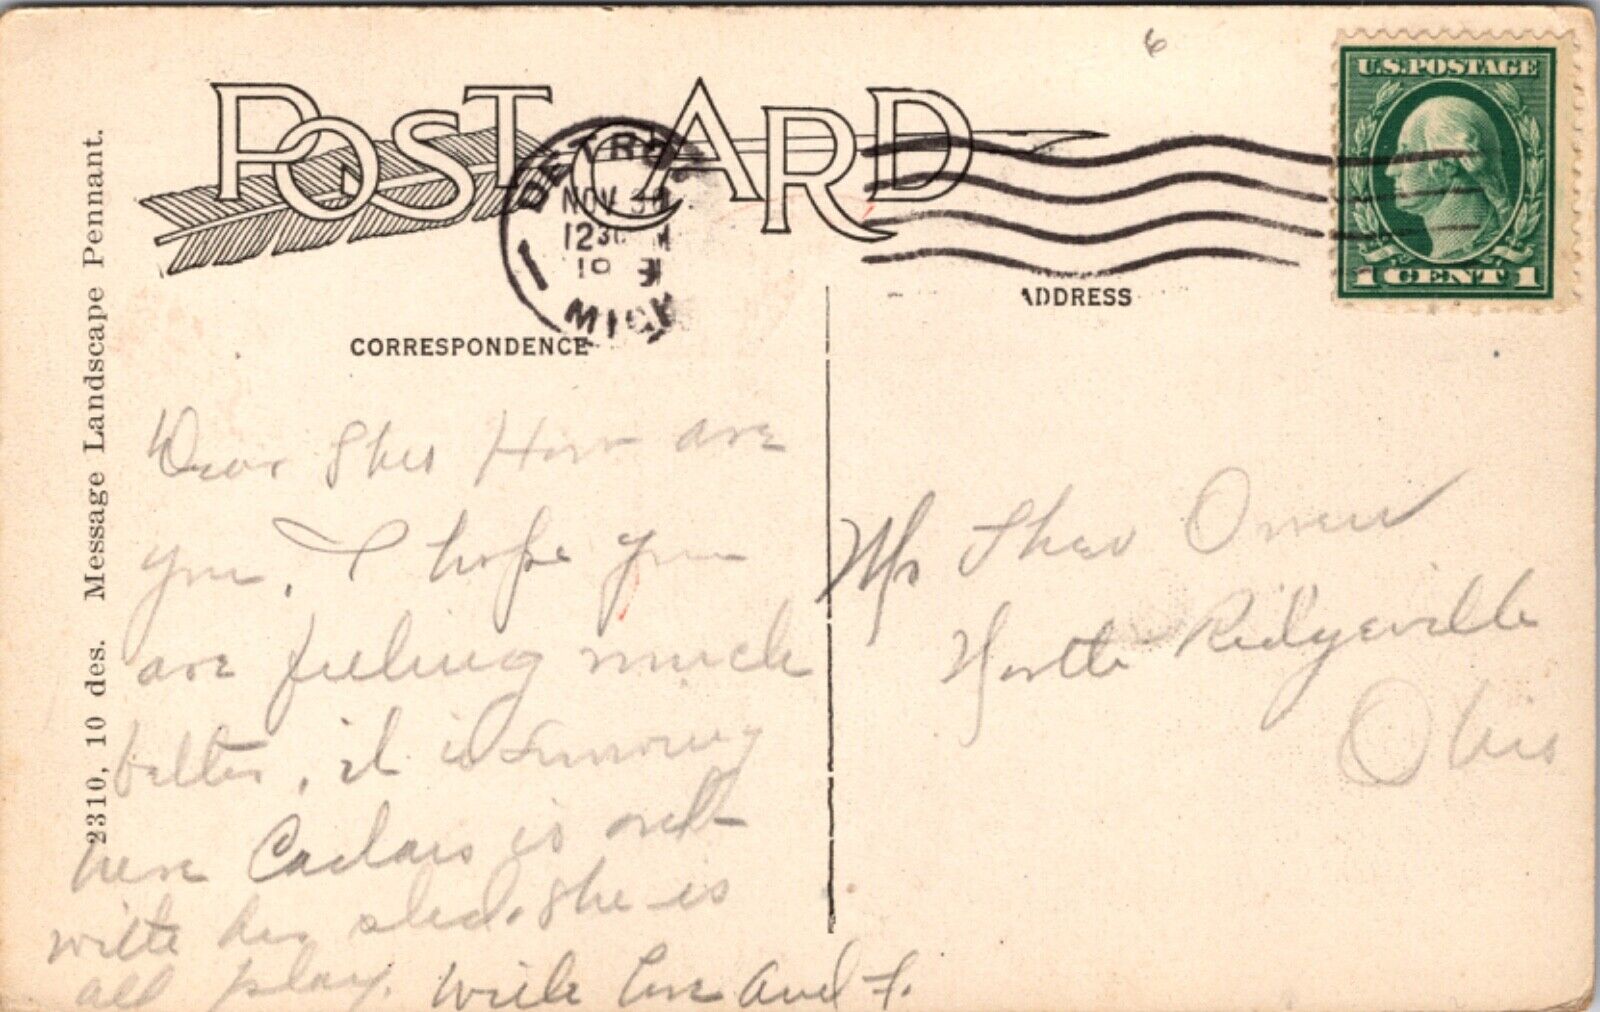 6
POST CARD
U.S. POSTAGE
1 CENT 1
DETROIT
NOV 30
12 30 M
1
MICH
CORRESPONDENCE
ADDRESS
2310, 10 des. Message Landscape Pennant.
Dear How are
you, I hope you
are feeling much
better, it is snowing
here is out
with her sled. She is
all play. with love and F.
Mr Owen
North Ridgeville
Ohio